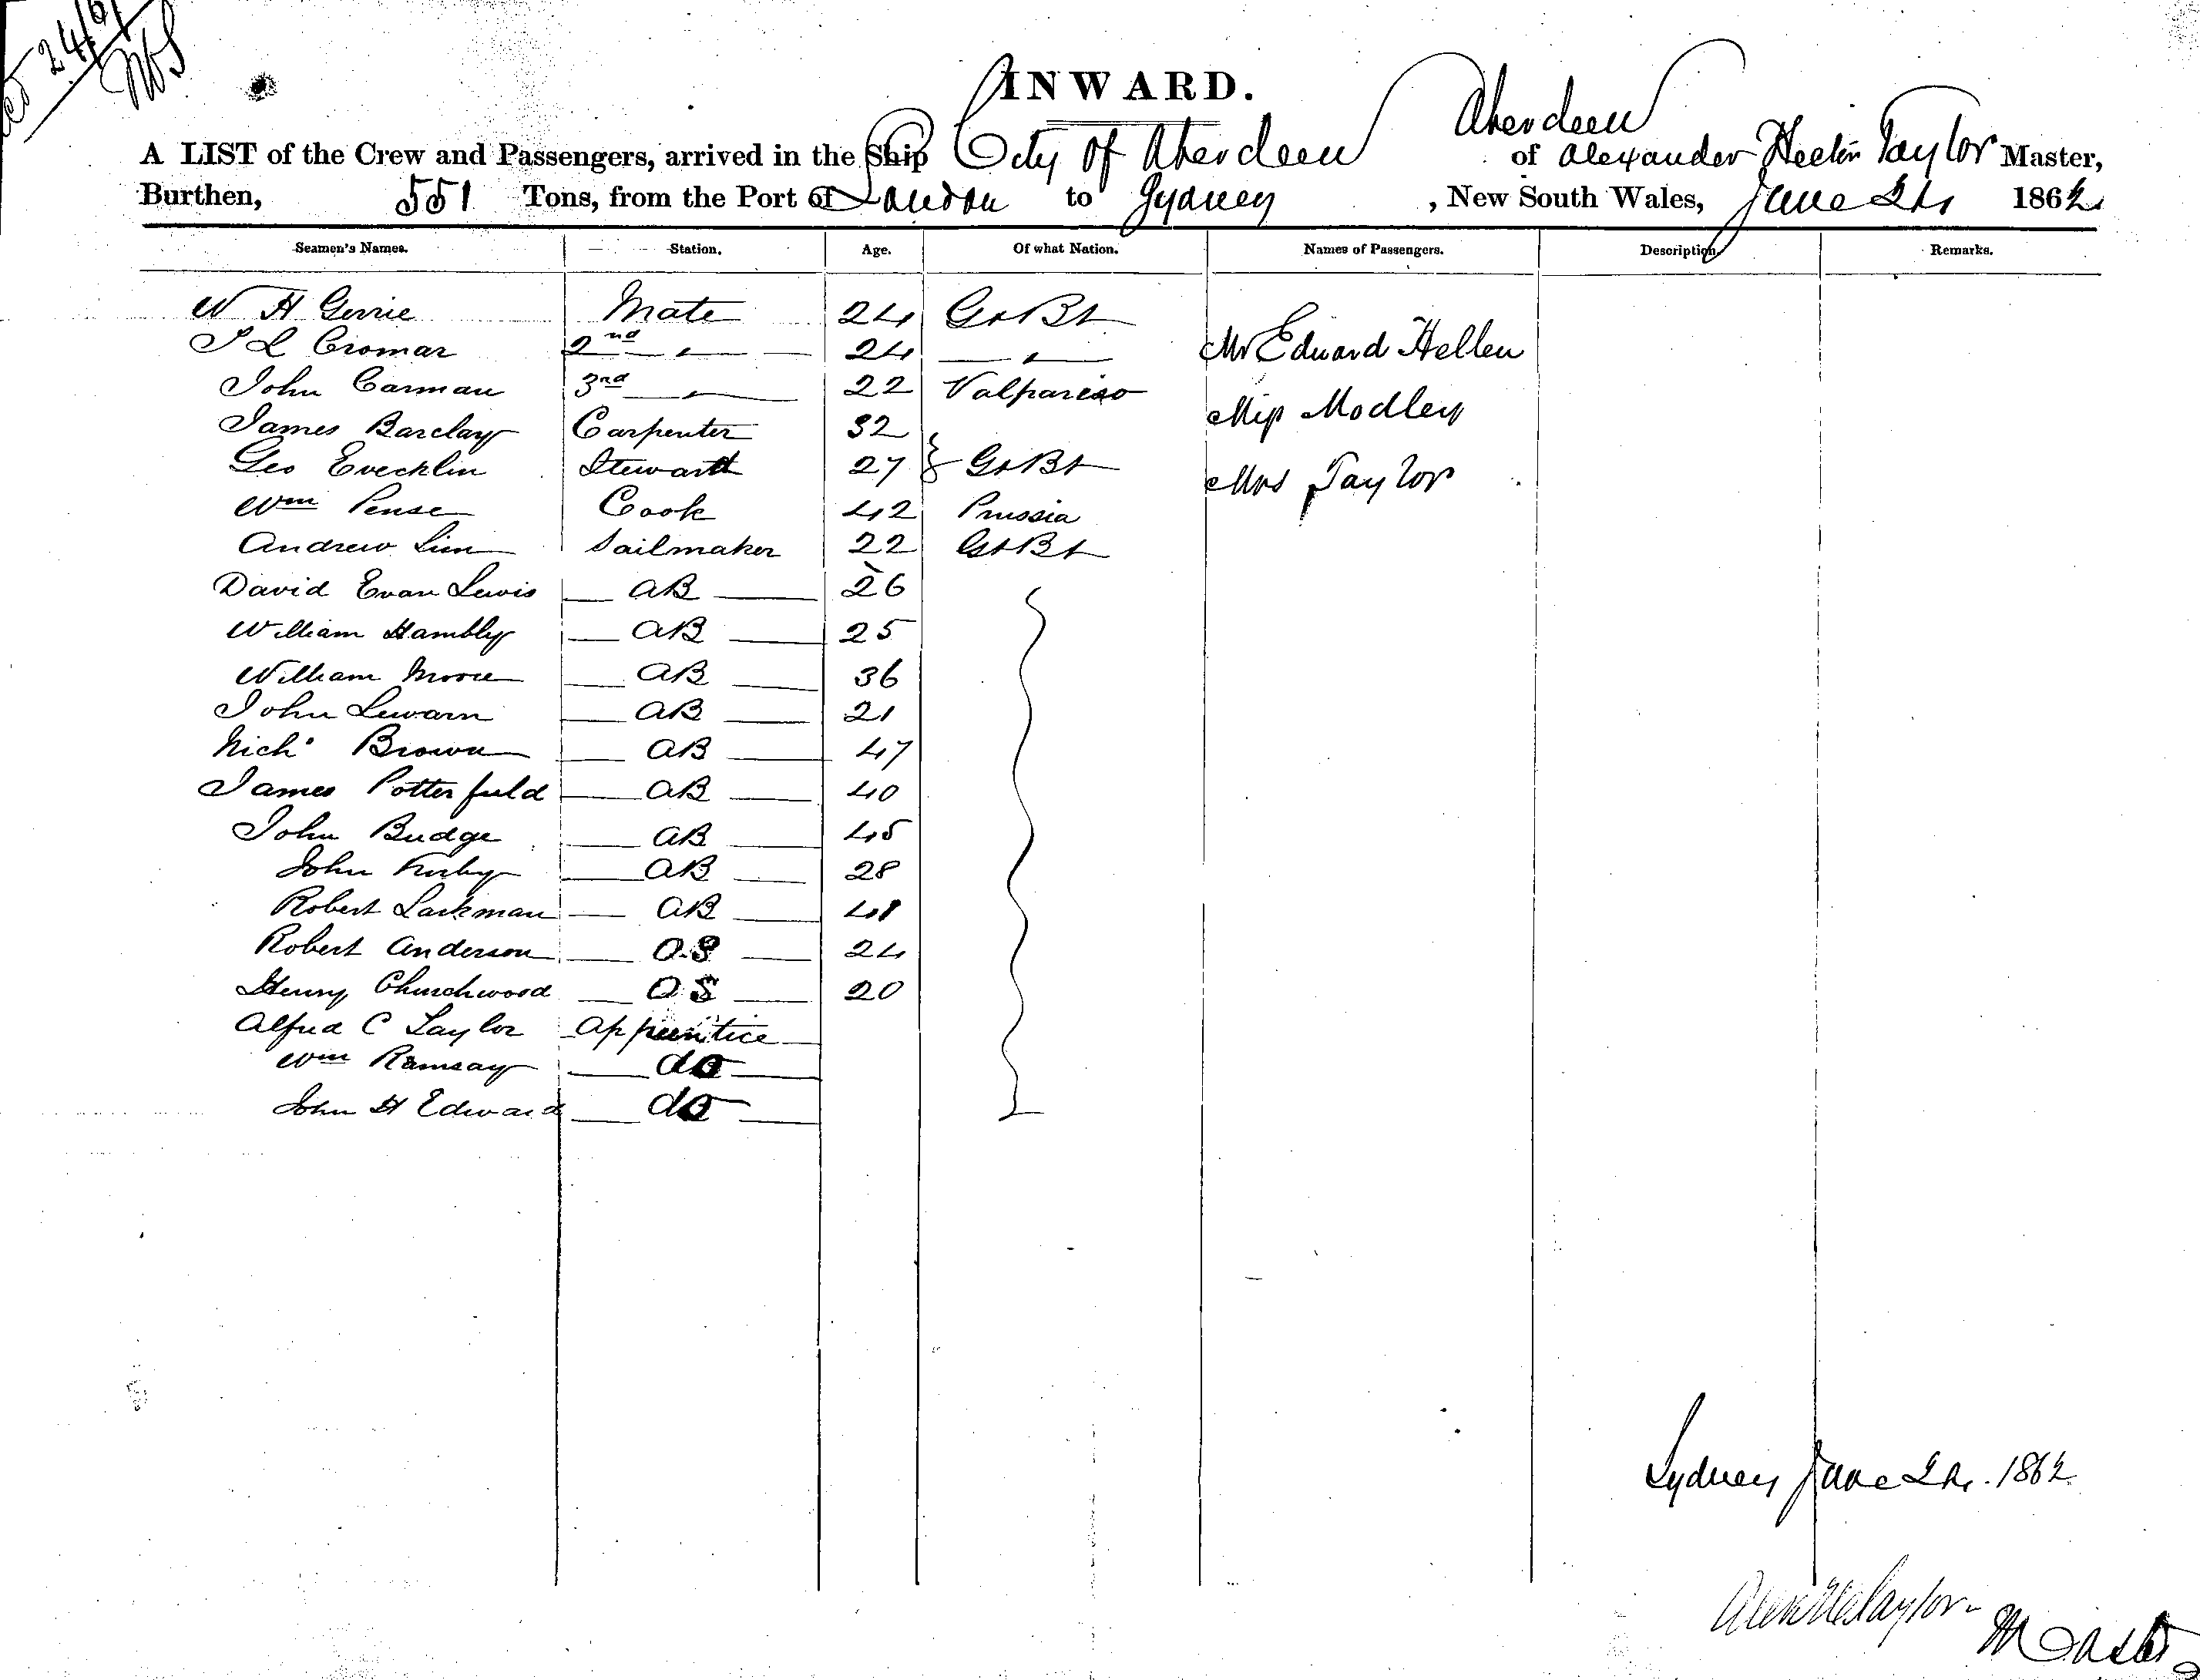 24/6/
INWARD.
Aberdeen
A LIST of the Crew and Passengers, arrived in the Ship City of Aberdeen of Alexander Hector Taylor Master,
Burthen, 551 Tons, from the Port of London to Sydney, New South Wales, June 24 1862
Seamen's Names. Station. Age. Of what Nation. Names of Passengers. Description. Remarks.
W H Gerrie Mate 24 Gt Bt
J L Cromar 2nd " 24 "
Mr Edward Hellen
John Carman 3rd " 22 Valpariso
Miss Modley
James Barclay Carpenter 32
Geo Evecklin Steward 27 } Gt Bt
Mrs Taylor
Wm Pense Cook 42 Prussia
Andrew Sim Sailmaker 22 Gt Bt
David Evan Lewis AB 26
William Hambly AB 25
William Moore AB 36
John Lewarn AB 21
Nich Brown AB 47
James Potterfield AB 40
John Budge AB 45
John Kirby AB 28
Robert Lackman AB 41
Robert Anderson O.S 24
Henry Churchwood O S 20
Alfred C Taylor Apprentice
Wm Ramsay do
John H Edward do
Sydney June 24. 1862
Alex H Taylor
Master